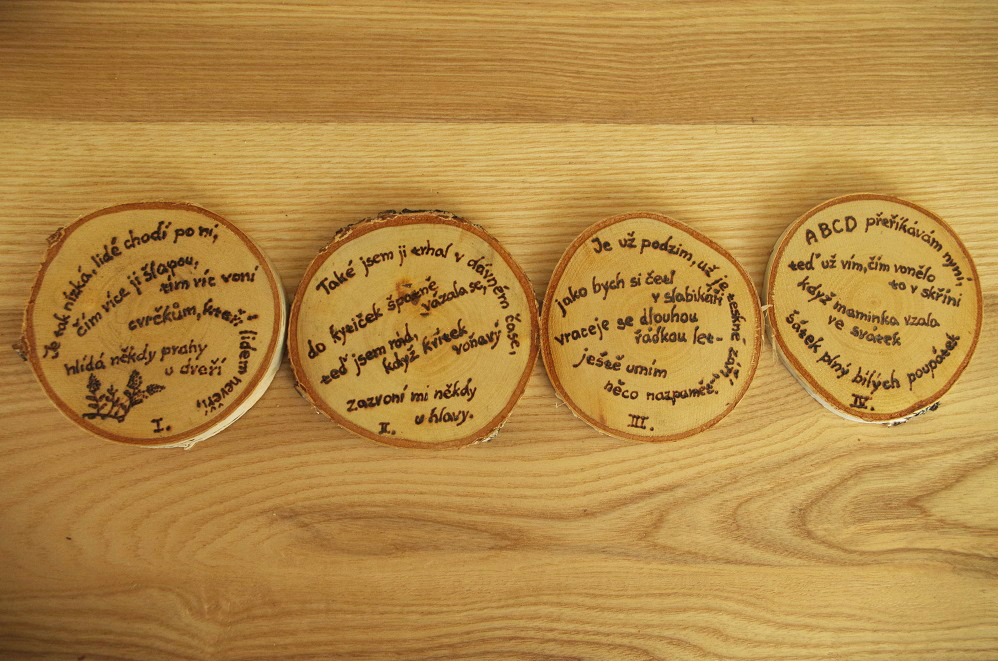 Je tak nízká, lidé chodí po ní,
čím více ji šlapou,
tím víc voní
cvrčkům, kteří
i lidem nevěří
hlídá někdy prahy
u dveří
I.
Také jsem ji trhal v dávném čase,
do kytiček špatně
vázala se,
teď jsem rád,
když kvítek
voňavý
zazvoní mi někdy
u hlavy.
II.
Je už podzim, už je teskné září,
jako bych si četl
v slabikáři
vraceje se dlouhou
řádkou let-
ještě umím
něco nazpamět.
III.
ABCD přeříkávám nyní,
teď už vím, čím vonělo
to v skříni
když maminka vzala
ve svátek
šátek plný bílých poupátek
IV.